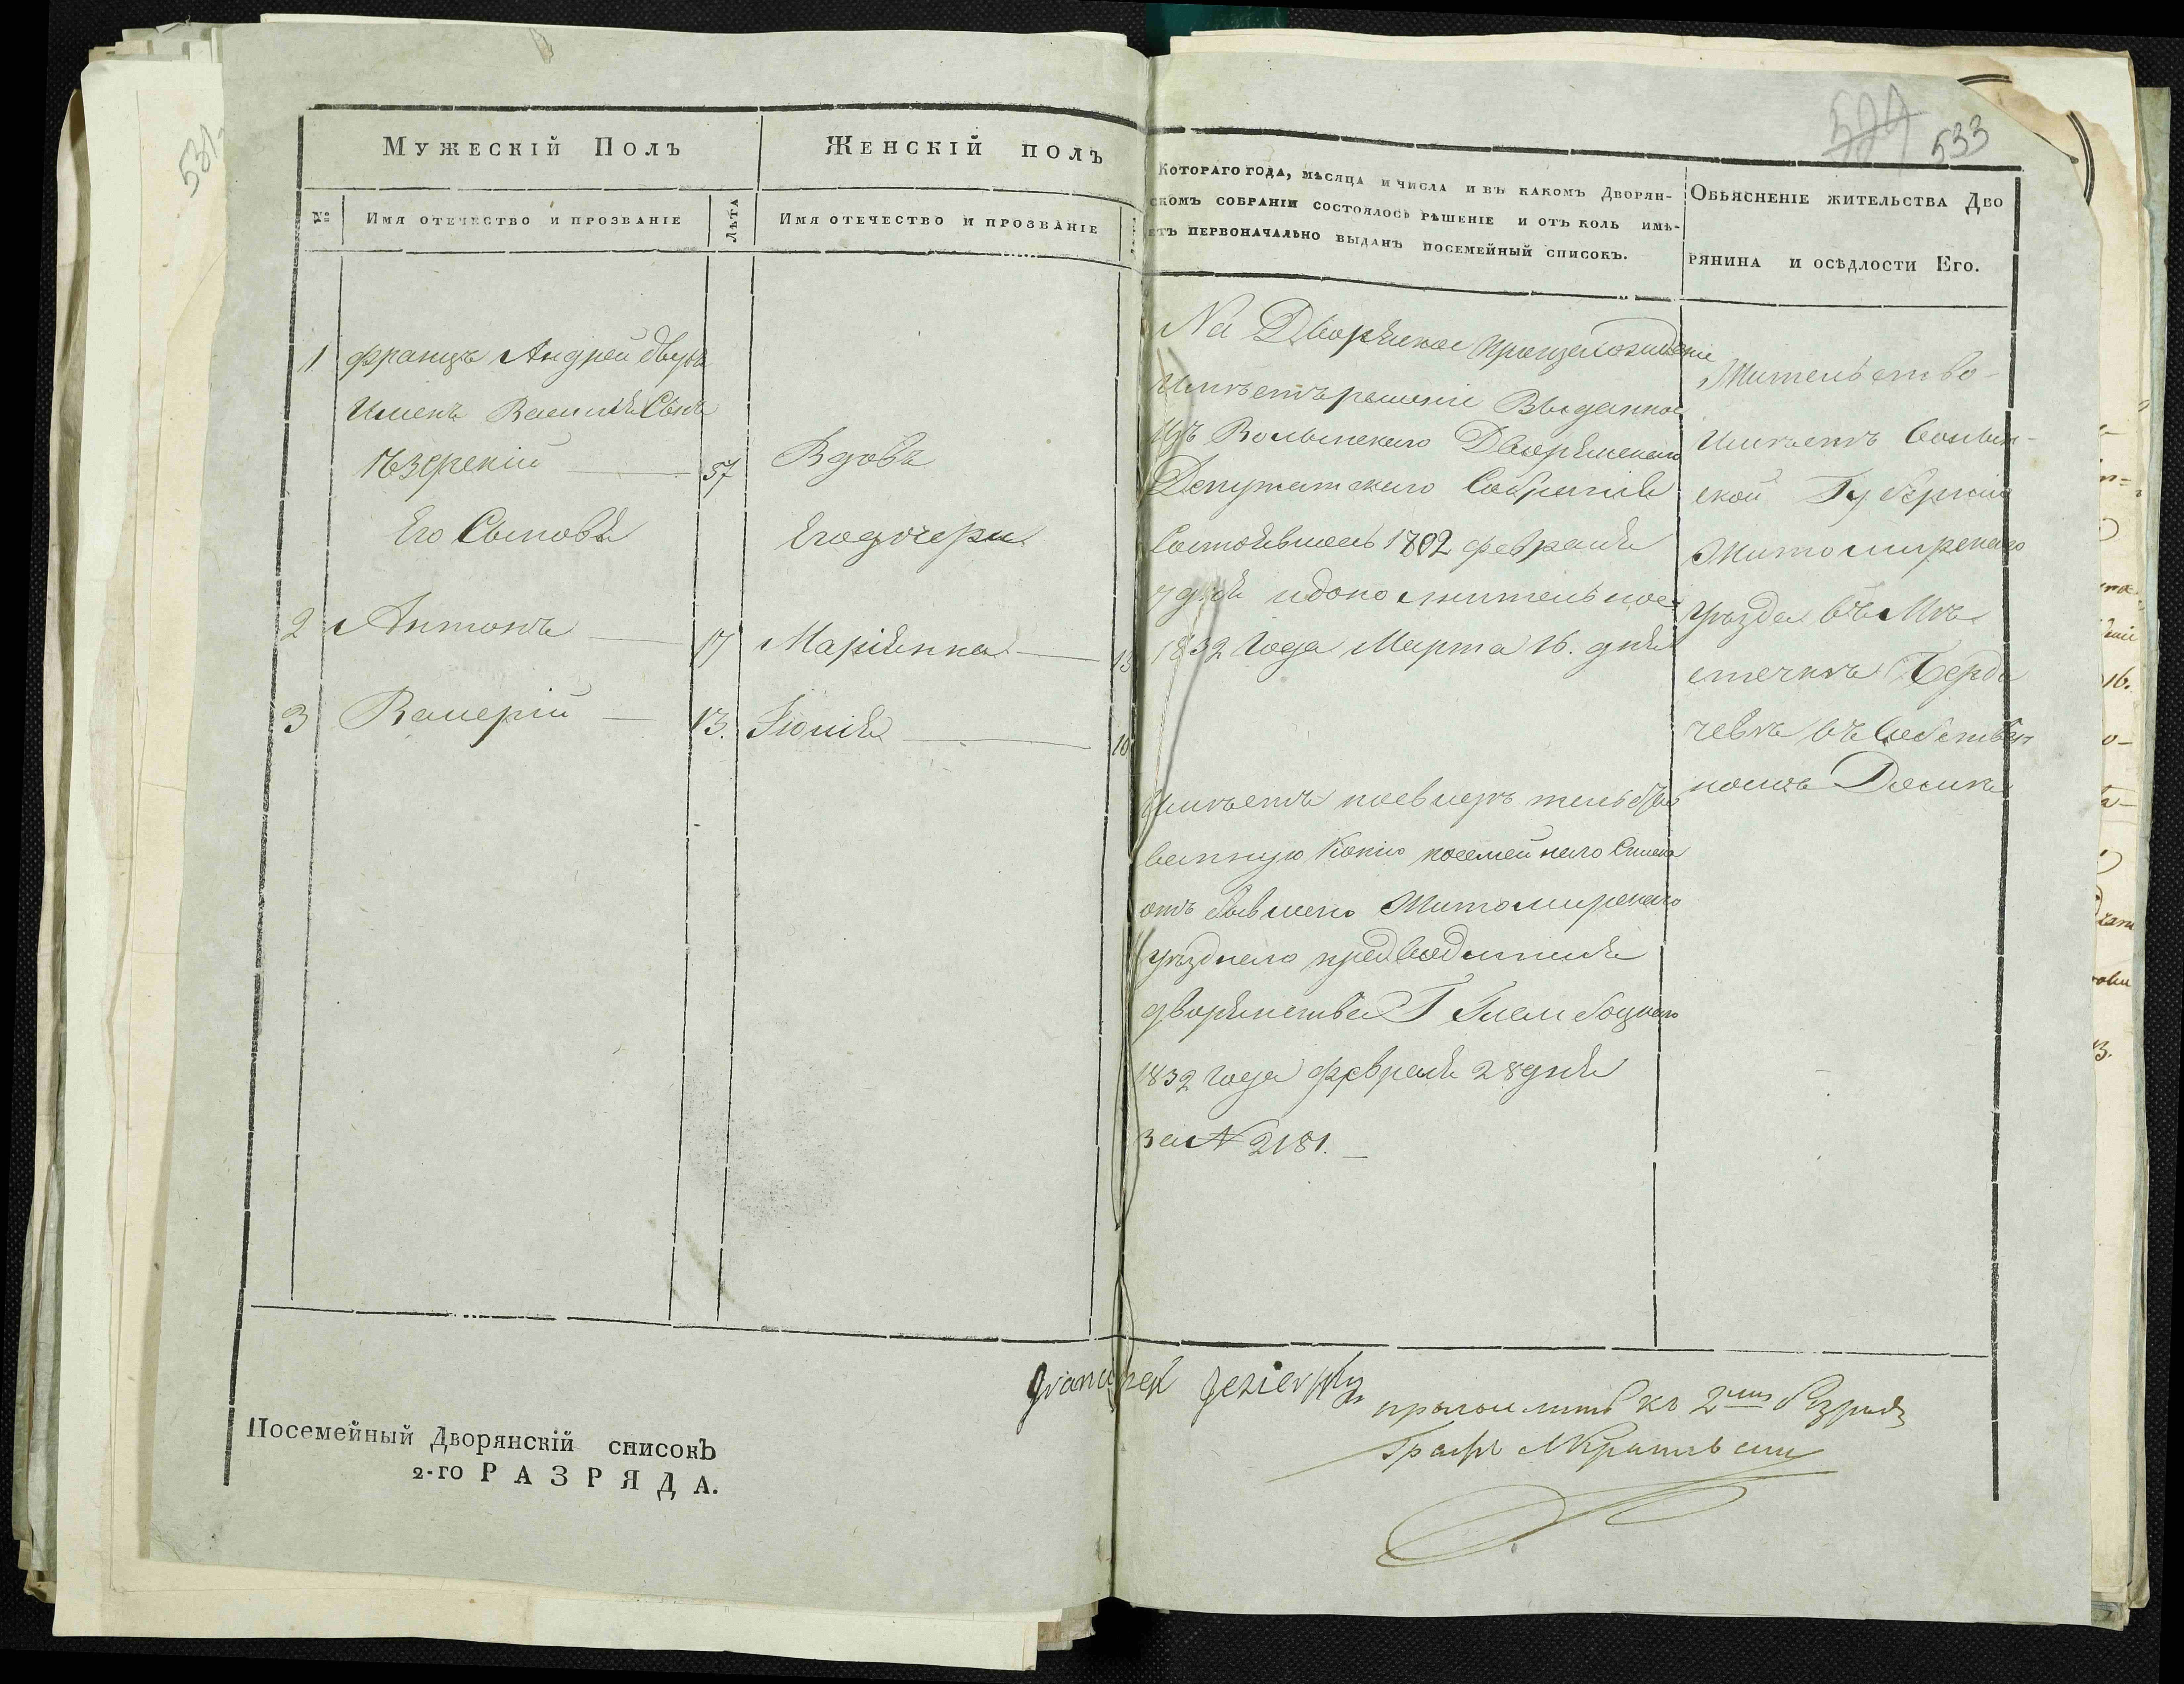 531
Мужескій Полъ
Женскій полъ
№
Имя отечество и прозваніе
Лѣта
Имя отечество и прозваніе
1 Францъ Андрей двухъ
Именъ Василя Сынъ
Ѣзерскій — 57
Его Сыновя
2 Антонъ — 17
3 Валерій — 13.
Вдовъ
Его дочери
Маріянна — 15
Юлія — 10
524 533
Котораго года, мѣсяца и числа и въ какомъ Дворян-
скомъ собраніи состоялось рѣшеніе и отъ коль имѣ-
етъ первоначально выданъ посемейный списокъ.
На Дворянское происхожденіе
Имѣетъ решеніе Выданное
Изъ Волынскаго Дворянскаго
Депутатскаго Собранія
Состоявшеесь 1802 февраля
7 дня и дополнительное
1832 года Марта 16. дня
Имѣетъ
ванную Копію посемейнаго Списка
отъ бывшаго Житомирскаго
уѣзднаго предводителя
дворянства Г
1832 года февраля 28 дня
за № 2181. —
Обьясненіе жительства Дво
рянина и осѣдлости Его.
Жительство
Имѣетъ Волын-
ской Губерніи
Житомирскаго
уѣзда въ Мѣ
стечкѣ Берди
чевѣ въ Собствен
номъ Домѣ
Посемейный Дворянскій списокЪ
2-го РАЗРЯДА.
Franciszek Jezierski
къ 2му
Графъ